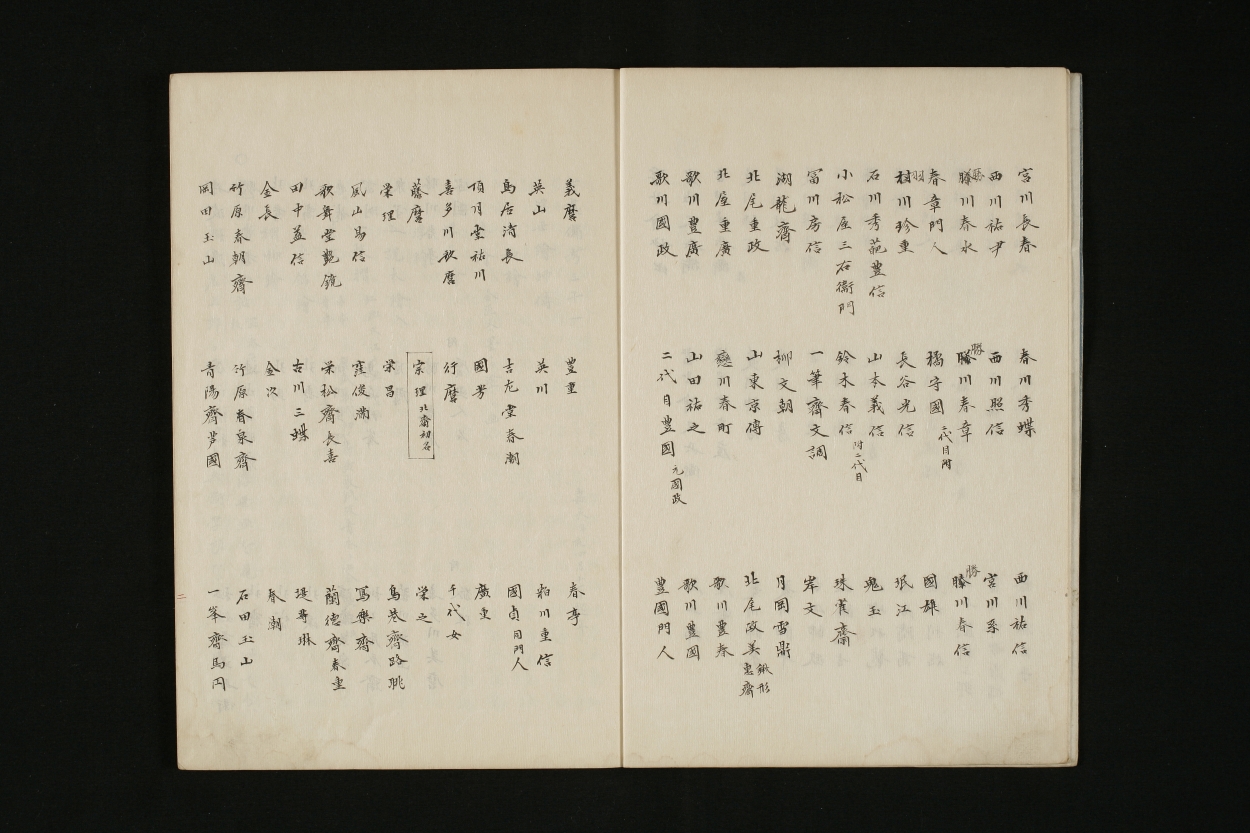 宮川長春　春川秀蝶　西川祐信
西川祐尹　西川照信　宮川系
勝川春水　勝川春章　勝川春信
春章門人　橘守國 二代目附　國雄
羽川珍重　長谷光信　珉江
石川秀葩豊信　山本義信　鬼玉
小松屋三右衛門　鈴木春信 附二代目　珠雀齋
冨川房信　一筆齊文調　岸文
湖龍齊　柳文朝　月岡雪鼎
北尾重政　山東京傳　北尾政美 鍬形蕙齊
北尾重廣　戀川春町　歌川豊春
歌川豊廣　山田祐之　歌川豊國
歌川國政　二代目豊國 元國政　豊國門人
義麿　豊重　春亭
英山　英川　粕川重信
鳥居清長　吉左堂春潮　國貞 同門人
頂月堂祐川　國芳　廣重
喜多川歌麿　行麿　千代女
藤麿　宗理 北齋初名　栄之
栄理　栄昌　鳥巷齊路眺
風山昜信　窪俊満　写楽齋
歌舞堂艶鏡　栄松齊長喜　蘭徳齊春童
田中益信　古川三蝶　堤等琳
金長　金次　春潮
竹原春朝齊　竹原春泉齊　石田玉山
岡田玉山　青陽齊芦國　一峯齊馬円